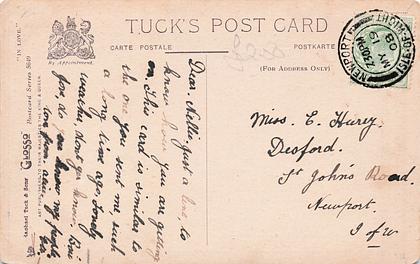 TUCK'S POST CARD
CARTE POSTALE
POSTKARTE
(FOR ADDRESS ONLY)
By Appointment.
"IN LOVE."
Raphael Tuck & Sons' "GLOSSO" Postcard Series 5849
ART PUBLISHERS TO THEIR MAJESTIES THE KING & QUEEN.
NEWPORT
ISLE-OF-WIGHT
7.30PM
MY 9
08
Dear Nellie just a line, to
know how you are getting
on. This card is similar to
the one you sent me such
a long time ago. Lovely
weather, dont you know.
you, do you know my people
love from
Miss. E. Hurey.
Desford.
St John's Road.
Newport.
I of W